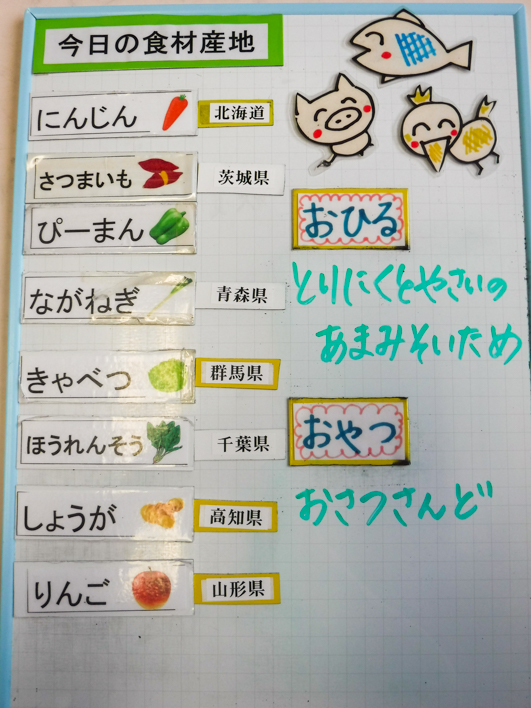 今日の食材産地
にんじん 北海道
さつまいも 茨城県
ぴーまん
ながねぎ 青森県
きゃべつ 群馬県
ほうれんそう 千葉県
しょうが 高知県
りんご 山形県
おひる
とりにくとやさいの
あまみそいため
おやつ
おさつさんど